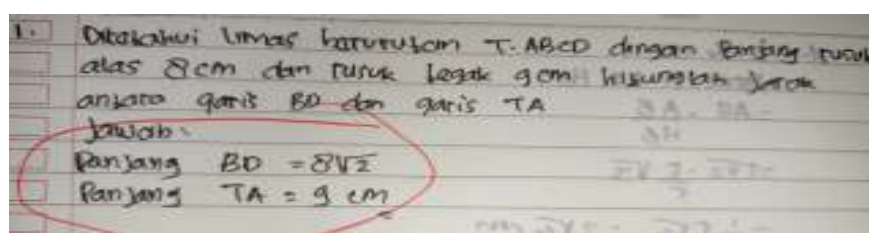 1. Diketahui limas beraturan T.ABCD dengan Panjang rusuk
alas 8cm dan rusuk tegak 9cm hitunglah jarak
antara garis BD dan garis TA
Jawab:
Panjang BD = 8√2
Panjang TA = 9 cm